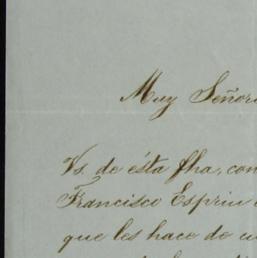 Muy Señore
Vs. de ésta fha, con
Francisco Espriu
que les hace de cu